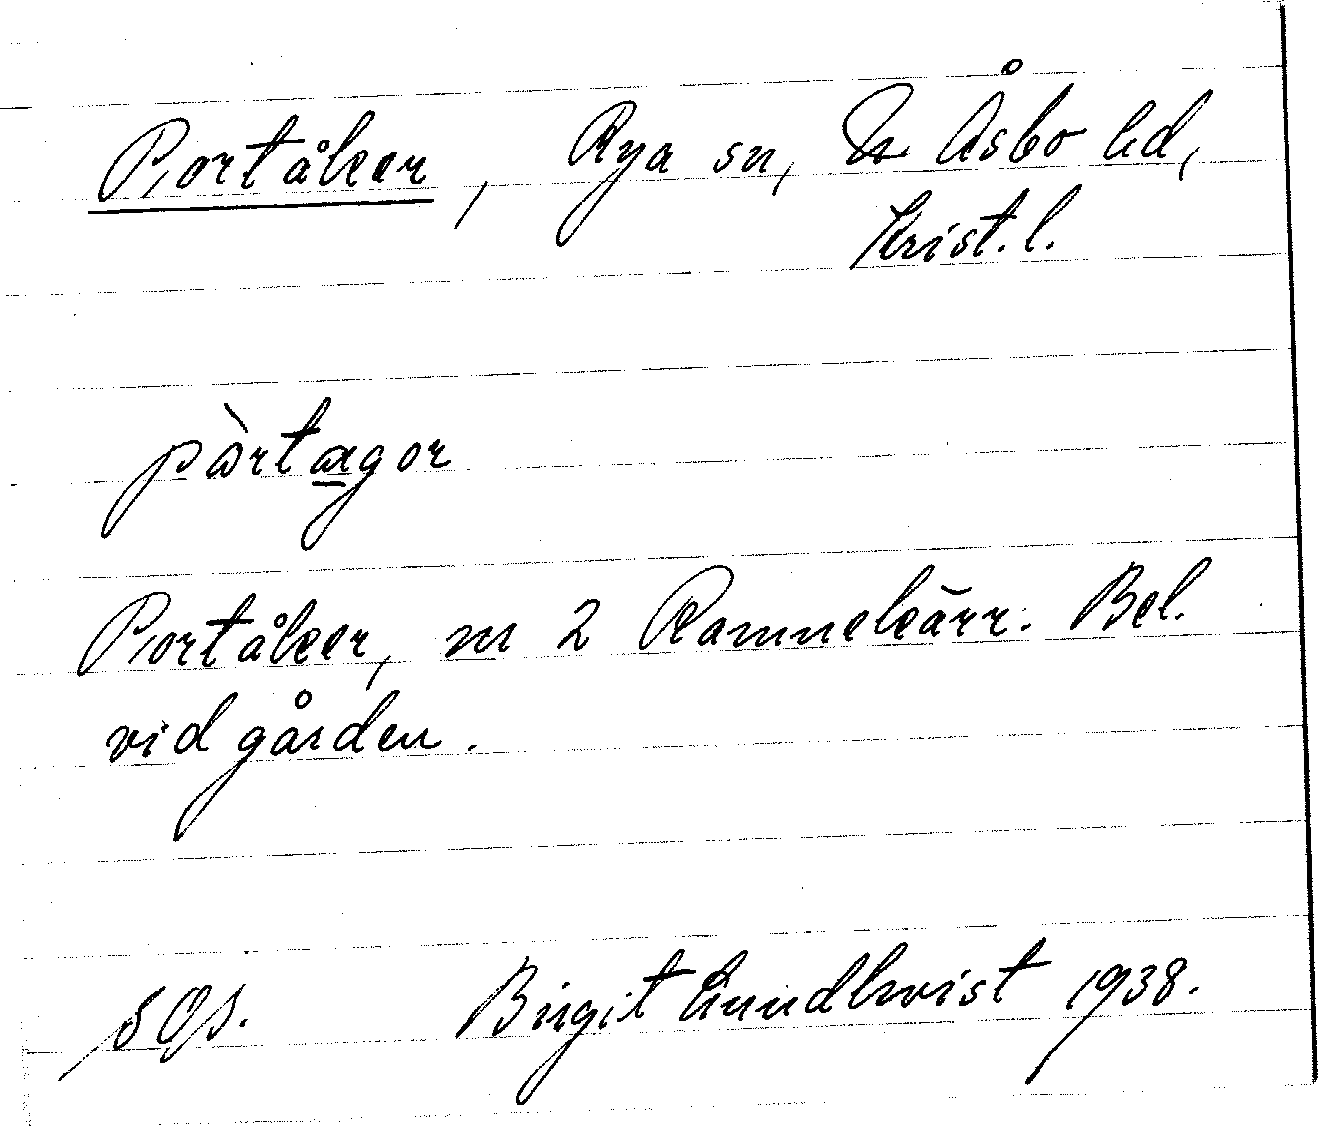 Portåker, Rya sn, N Åsbo hd,
Krist. l.
pàrtagor
Portåker, m 2 Ramnekärr. Bel.
vid gården.
Birgit Lundkvist 1938.